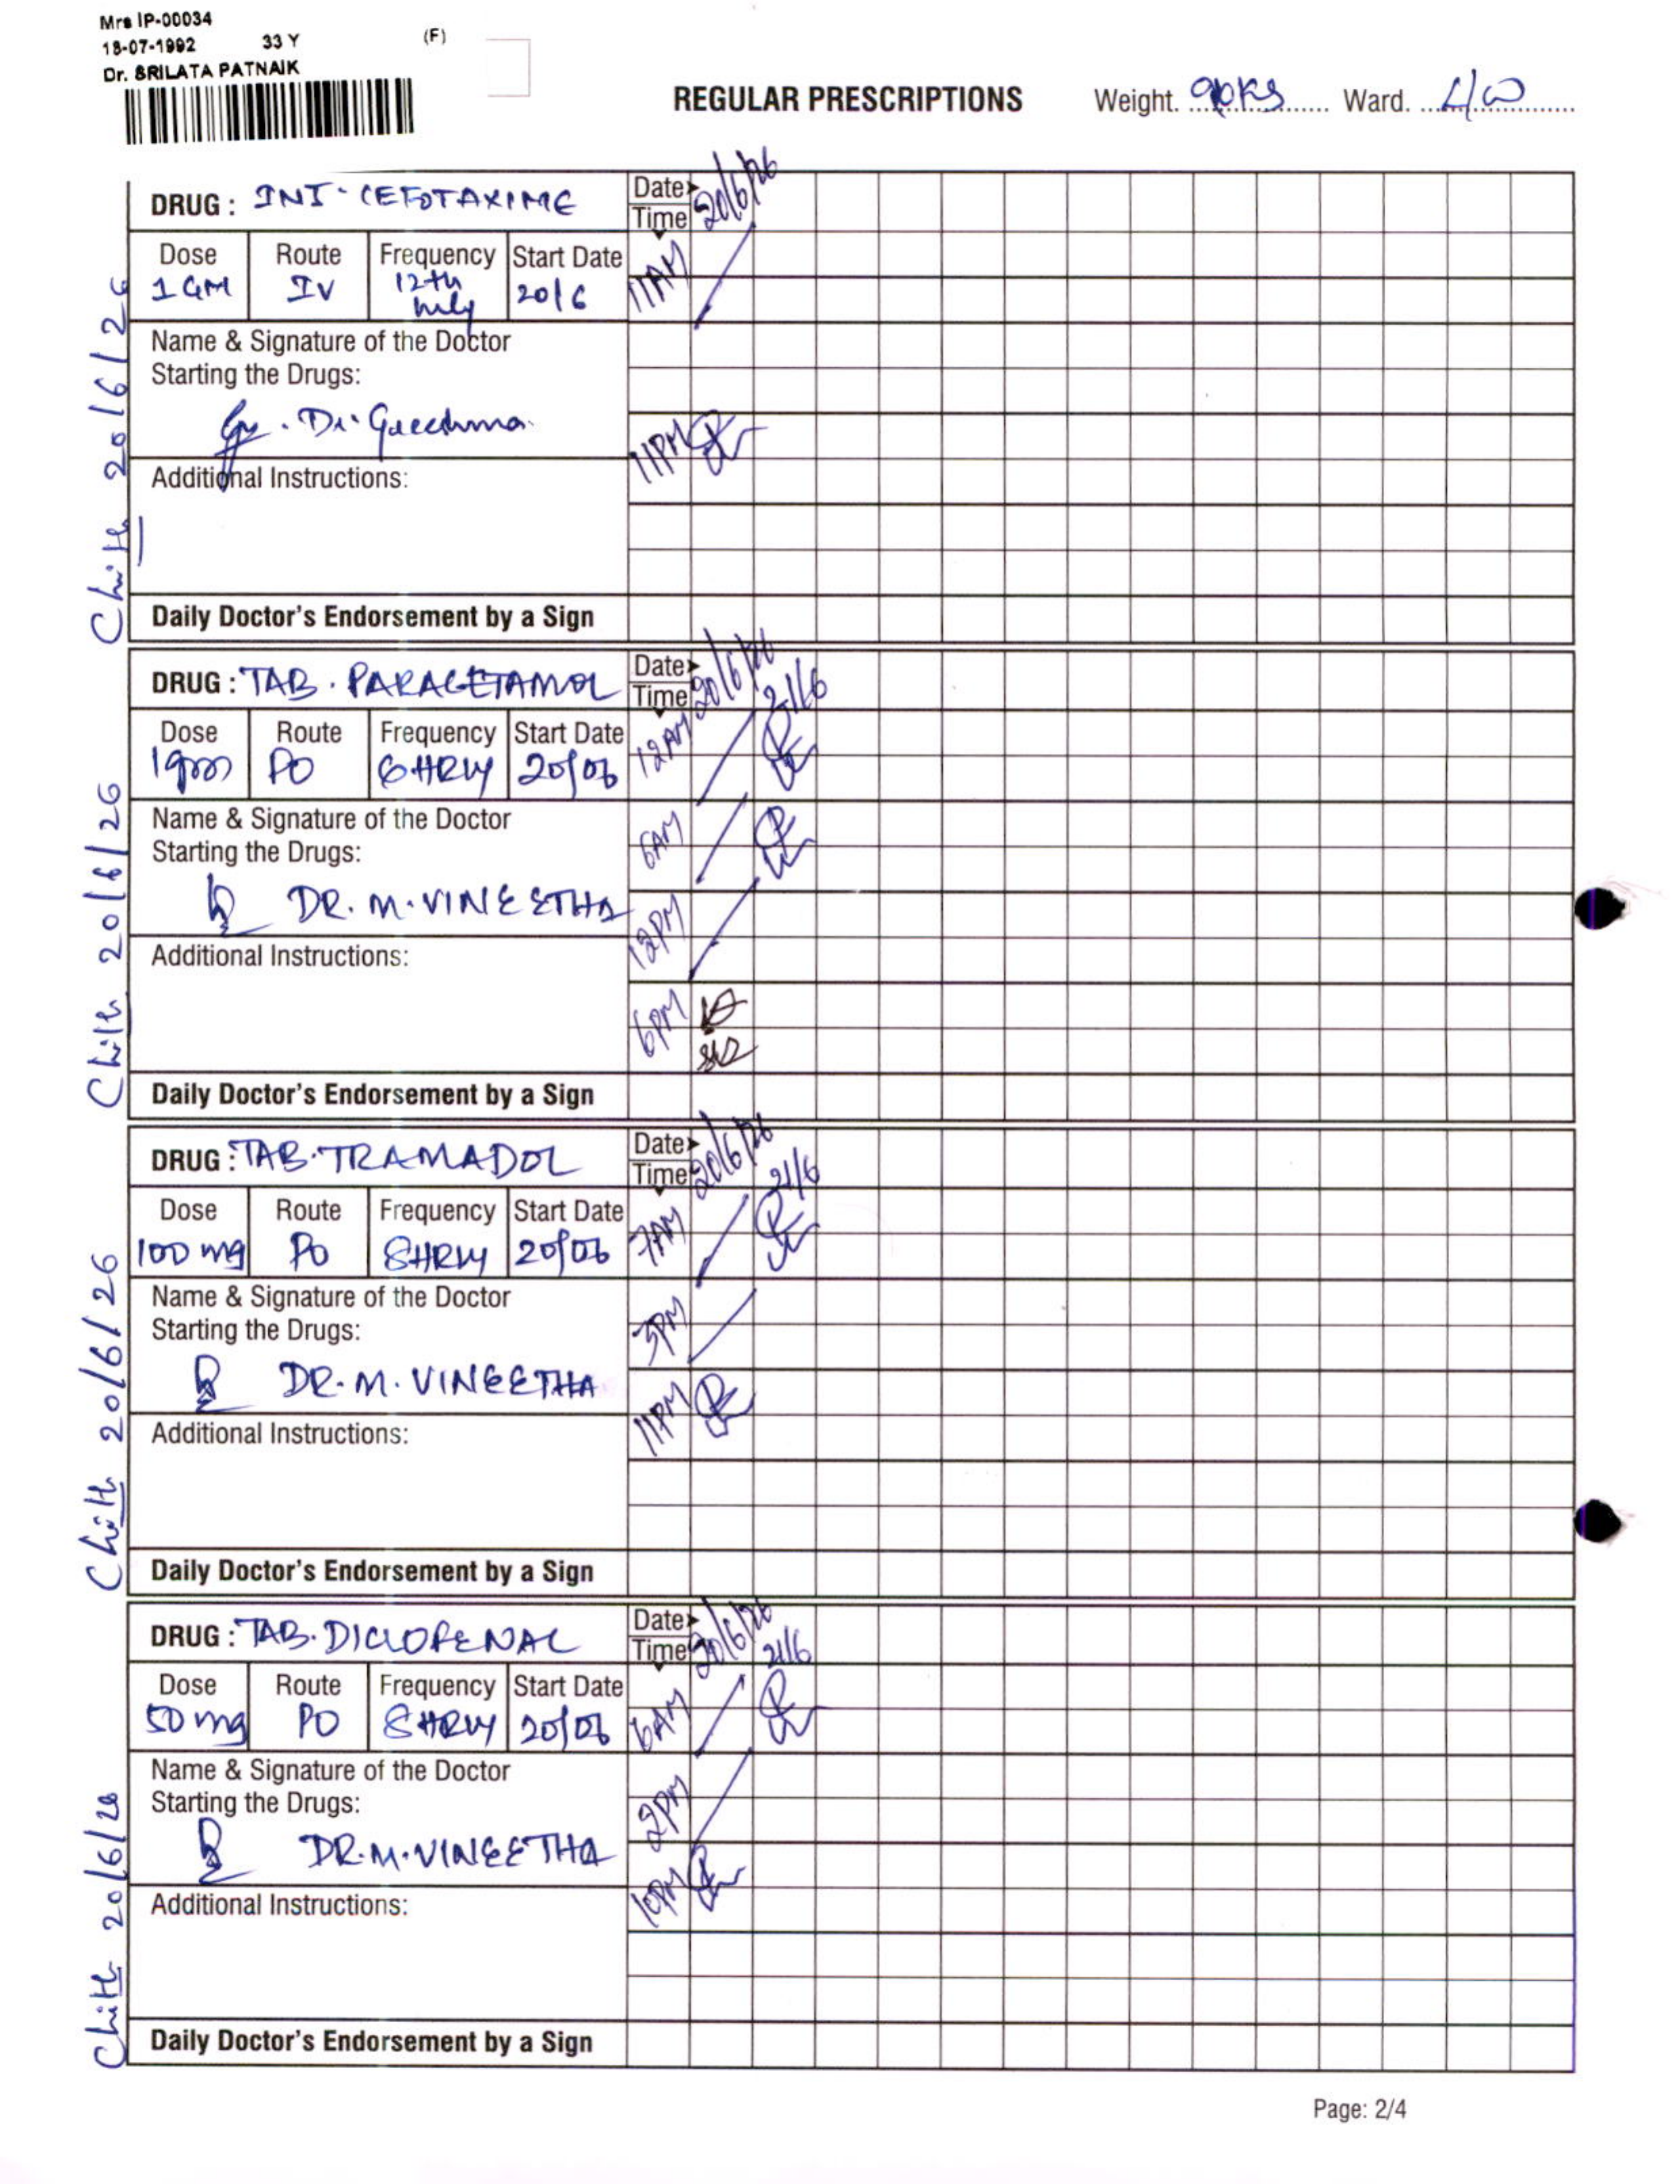 Mrs IP-00034
18-07-1992 33 Y (F)
Dr. SRILATA PATNAIK
REGULAR PRESCRIPTIONS Weight. 90KS Ward. L/W
DRUG : INJ. CEFOTAXIME Date Time 20/6/26
Dose Route Frequency Start Date
1 GM IV 12th hrly 20/6
11AM
Name & Signature of the Doctor
Starting the Drugs:
Dr. Greeshma
11PM
Additional Instructions:
Daily Doctor's Endorsement by a Sign
20/6/26
DRUG : TAB. PARACETAMOL Date Time 20/6/26 21/6
Dose Route Frequency Start Date
1gm PO 6HRLY 20/06
12AM
Name & Signature of the Doctor
Starting the Drugs:
6AM
DR. M. VINEETHA
12PM
Additional Instructions:
6PM
Daily Doctor's Endorsement by a Sign
20/6/26
DRUG : TAB. TRAMADOL Date Time 20/6/26 21/6
Dose Route Frequency Start Date
100 mg PO 8HRLY 20/06
7AM
Name & Signature of the Doctor
Starting the Drugs:
3PM
DR. M. VINEETHA
11PM
Additional Instructions:
Daily Doctor's Endorsement by a Sign
20/6/26
DRUG : TAB. DICLOFENAC Date Time 20/6/26 21/6
Dose Route Frequency Start Date
50 mg PO 8HRLY 20/06
6AM
Name & Signature of the Doctor
Starting the Drugs:
2PM
DR. M. VINEETHA
10PM
Additional Instructions:
Daily Doctor's Endorsement by a Sign
20/6/26
Page: 2/4